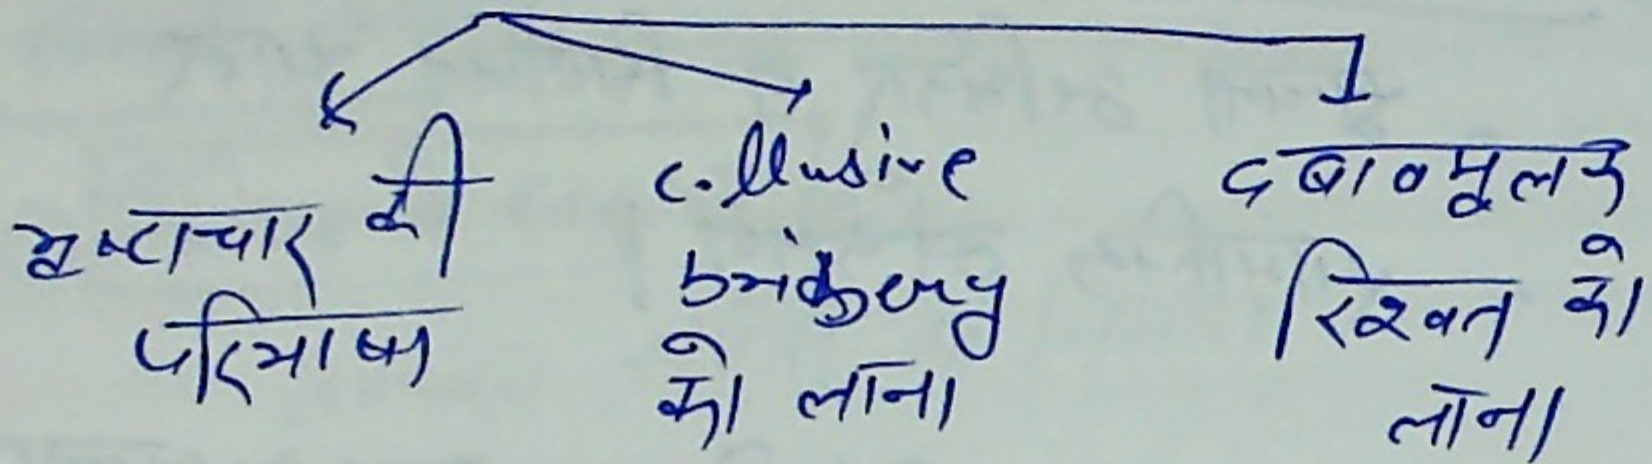 भ्रष्टाचार की
परिभाषा
collusive
bribery
को लाना
दबावमूलक
रिश्वत को
लाना